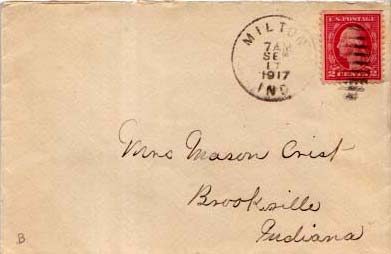 MILTON
7 AM
SEP
17
1917
IND
U.S. POSTAGE
2 CENTS 2
Mrs Mason Crist
Brookville
Indiana
B